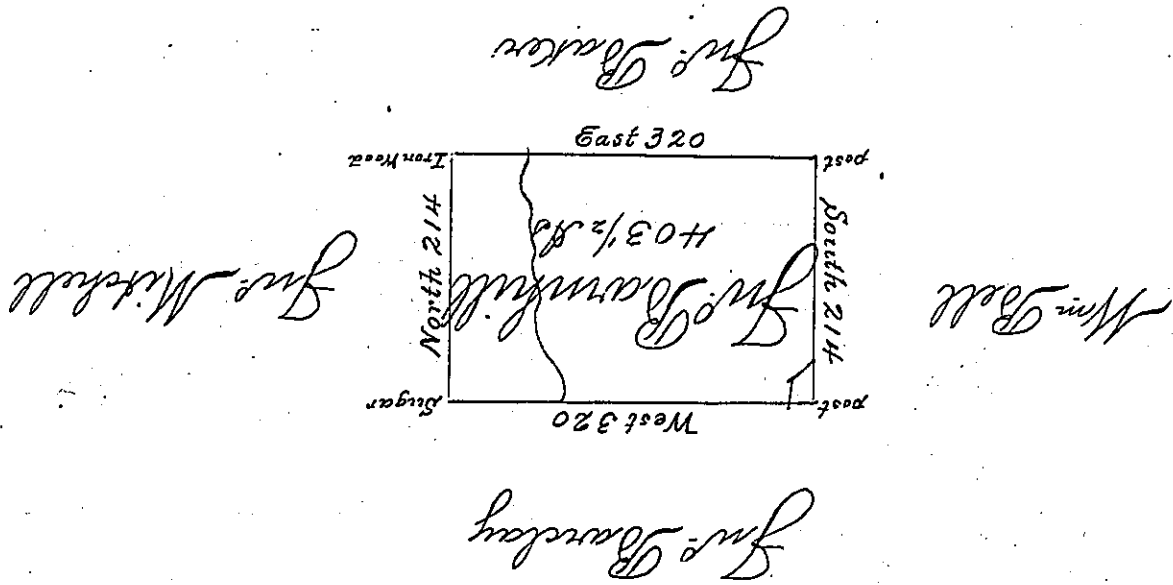 Jno. Barclay
West 320
post
Sugar
Wm. Bell
South 214
Jno. Barnhill
403 1/2 As
North 214
Jno. Mitchell
post
Iron Wood
East 320
Jno. Baker